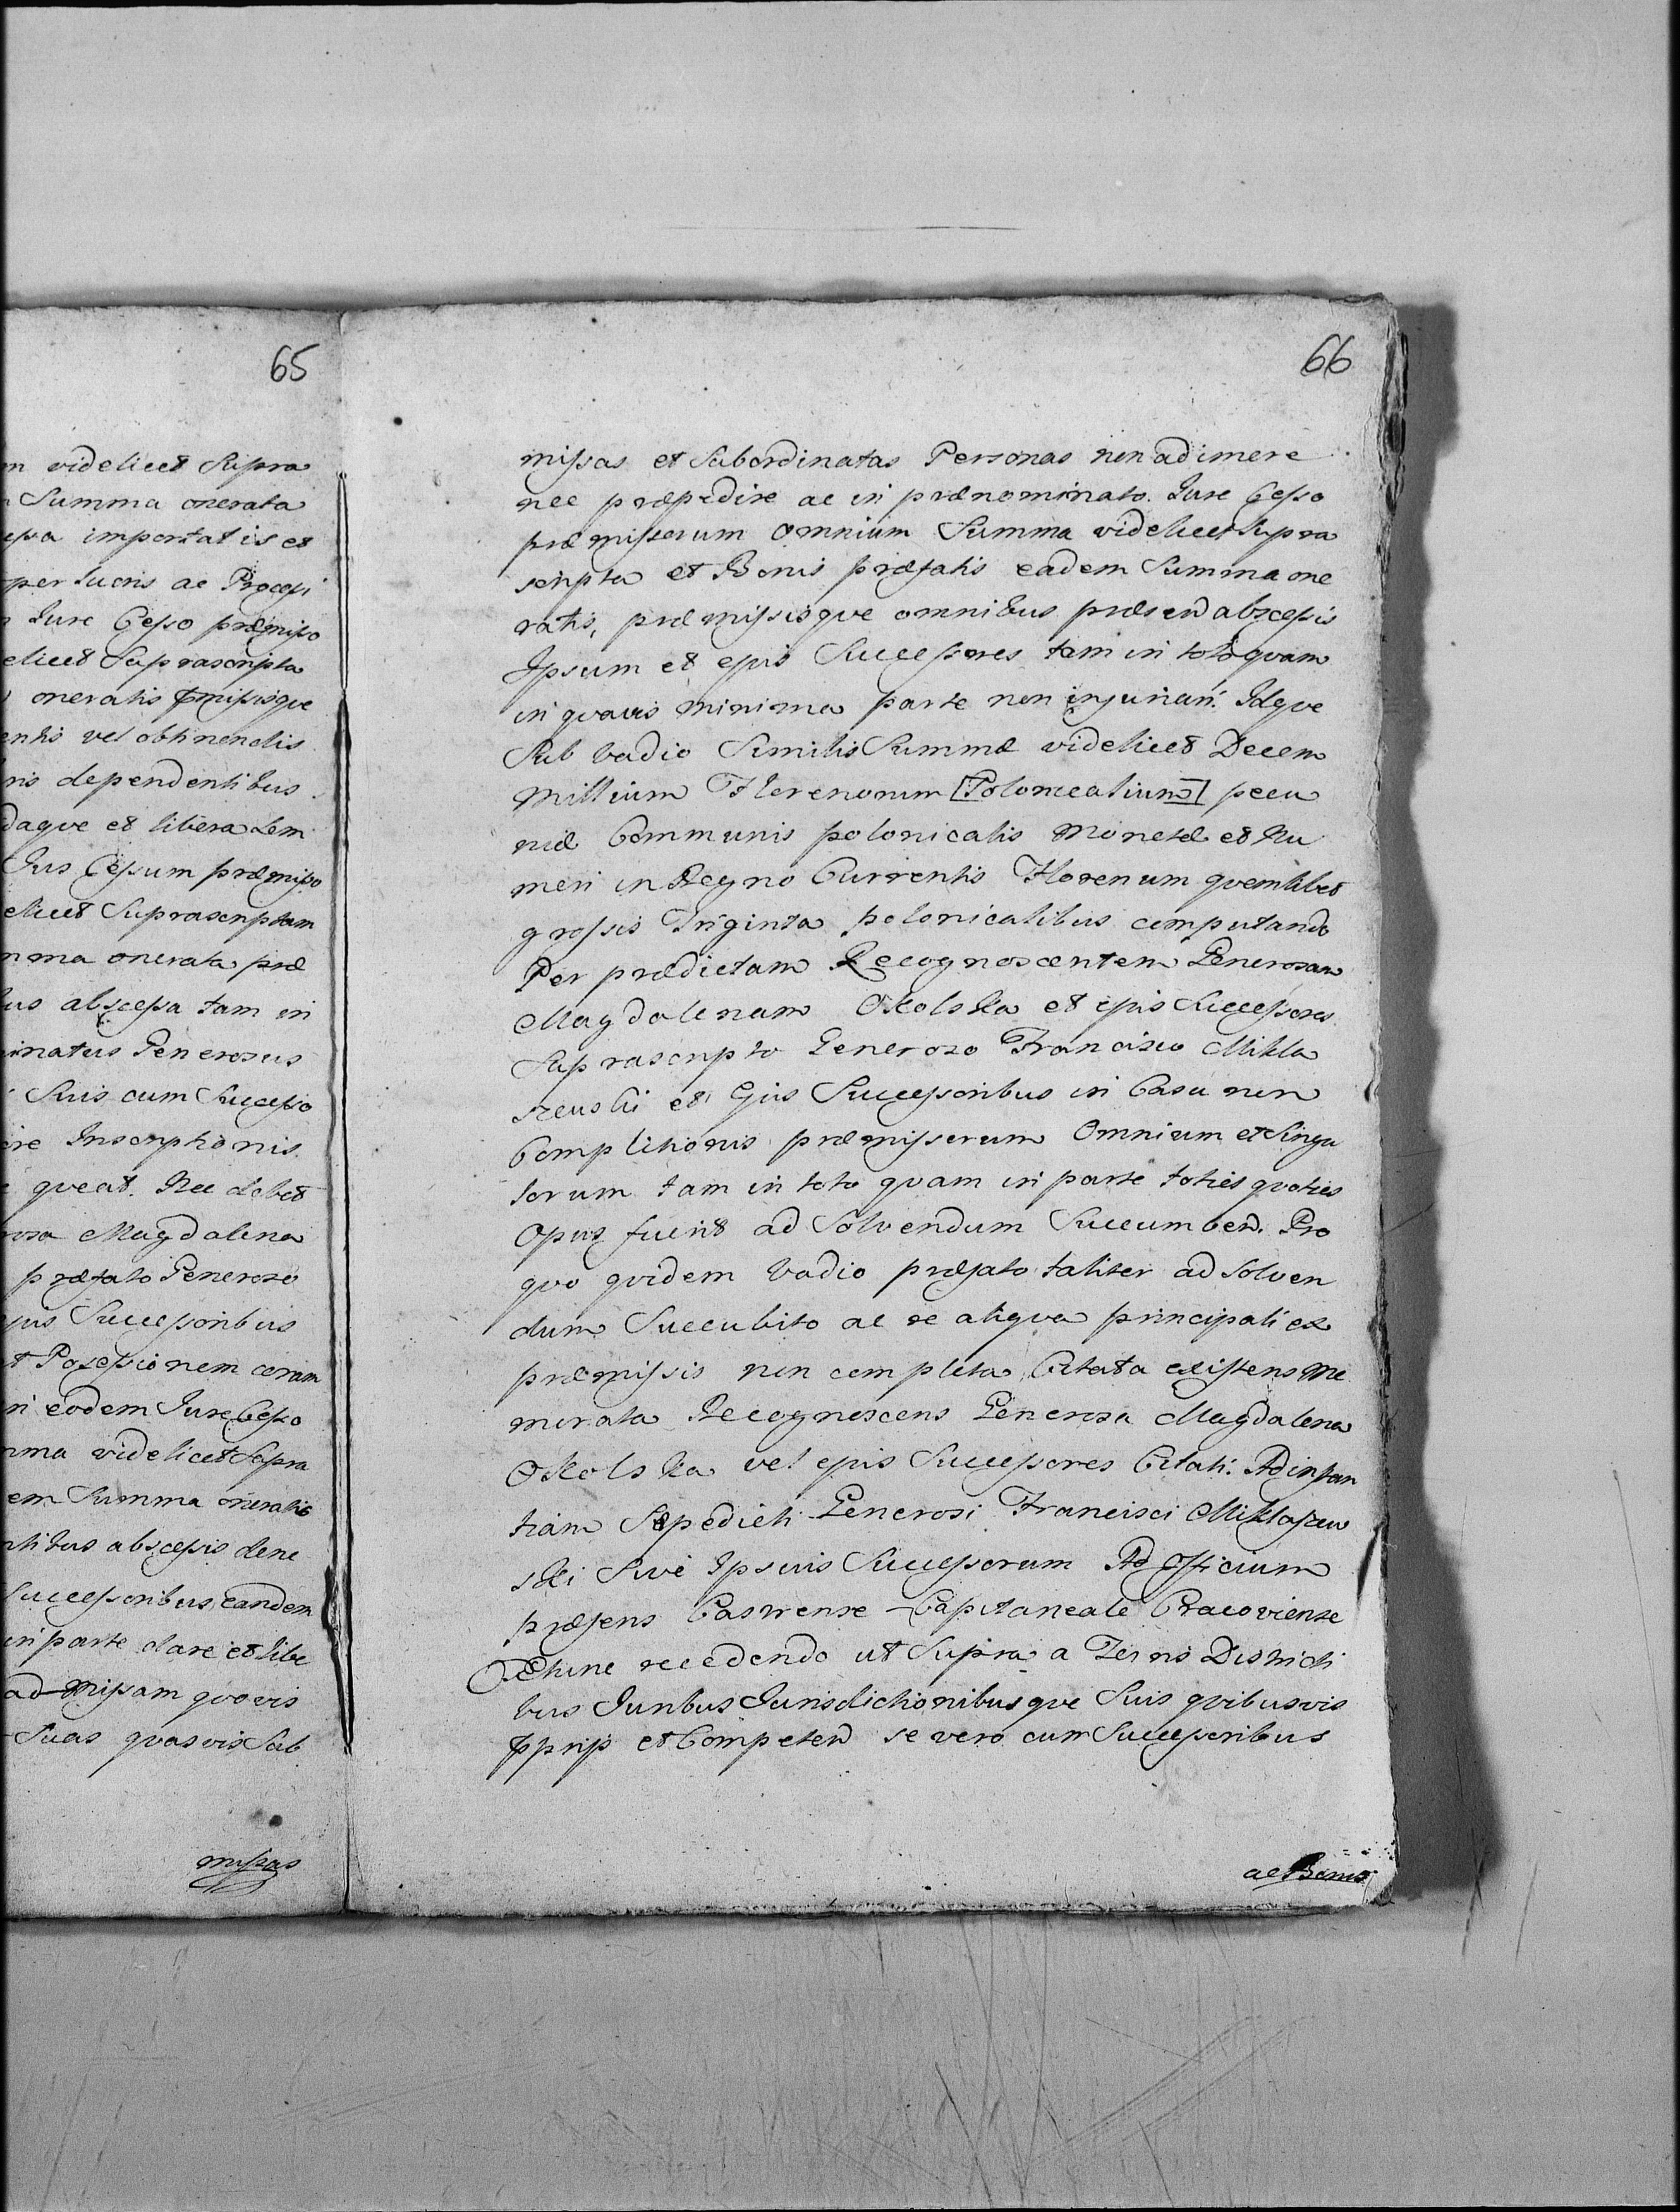 65
m videlicet Supra
Summa onerata
importatis et
per lucris ac Processi
Jure Cesso præmisso
elicet Suprascripta
oneratis pmissisque
entis vel obtinendis
ris dependentibus
daque et libera tem
Jus Cessum præmisso
elicet Suprascriptam
mma onerata præ
us abscessa tam in
inatus Generosus
Suis cum Successo
ire Inscriptionis
queat. Nec debet
rosa Magdalena
præfato Generoso
jus Successoribus
t Possessionem ceram
ri eodem Jure Cesso
mma videlicet Supra
em Summa oneratis
ntibus abscessis dene
Successoribus eandem
in parte dare et libe
ad missam quovis
Suas quasvis Sub
missas
66
missas et Subordinatas Personas non adimere
nec præpedire ac in prænominato Jure Cesso
præmissorum omnium Summa videlicet Supra
scripta et Bonis præfatis eadem Summa one
ratis, præmissisque omnibus præsend abscessis
Ipsum et ejus Successores tam in toto quam
in quavis minima parte non injuriari. Idque
Sub Vadio Similis Summæ videlicet Decem
Millium Florenorum [Polonicalium] pecu
niæ Communis polonicalis Monetæ et Nu
meri in Regno Currentis Florenum quemlibet
grossis Triginta polonicalibus computando
Per prædictam Recognoscentem Generosam
Magdalenam Okolska et ejus Successores
Suprascripto Generoso Francisco Mikla
szeuski et Ejus Successoribus in Casu non
Complitionis præmissorum Omnium et Singu
lorum tam in toto quam in parte toties quoties
Opus fuerit ad Solvendum Succumben. Pro
quo quidem Vadio præfato taliter ad Solven
dum Succubito ac re aliqua principali ex
præmissis non completa, Citata existens Me
morata Recognoscens Generosa Magdalena
Okolska vel ejus Successores Citati. Ad instan
tiam Sæpedicti Generosi Francisci Miklaszeu
ski Sive Ipsius Successorum Ad Officium
præsens Castrense Capitaneale Cracoviense
recedendo ut Supra a Terris Districti
bus Juribus Jurisdictionibusque Suis quibusvis
pprijs et Competen se vero cum Successoribus
ac Bonis